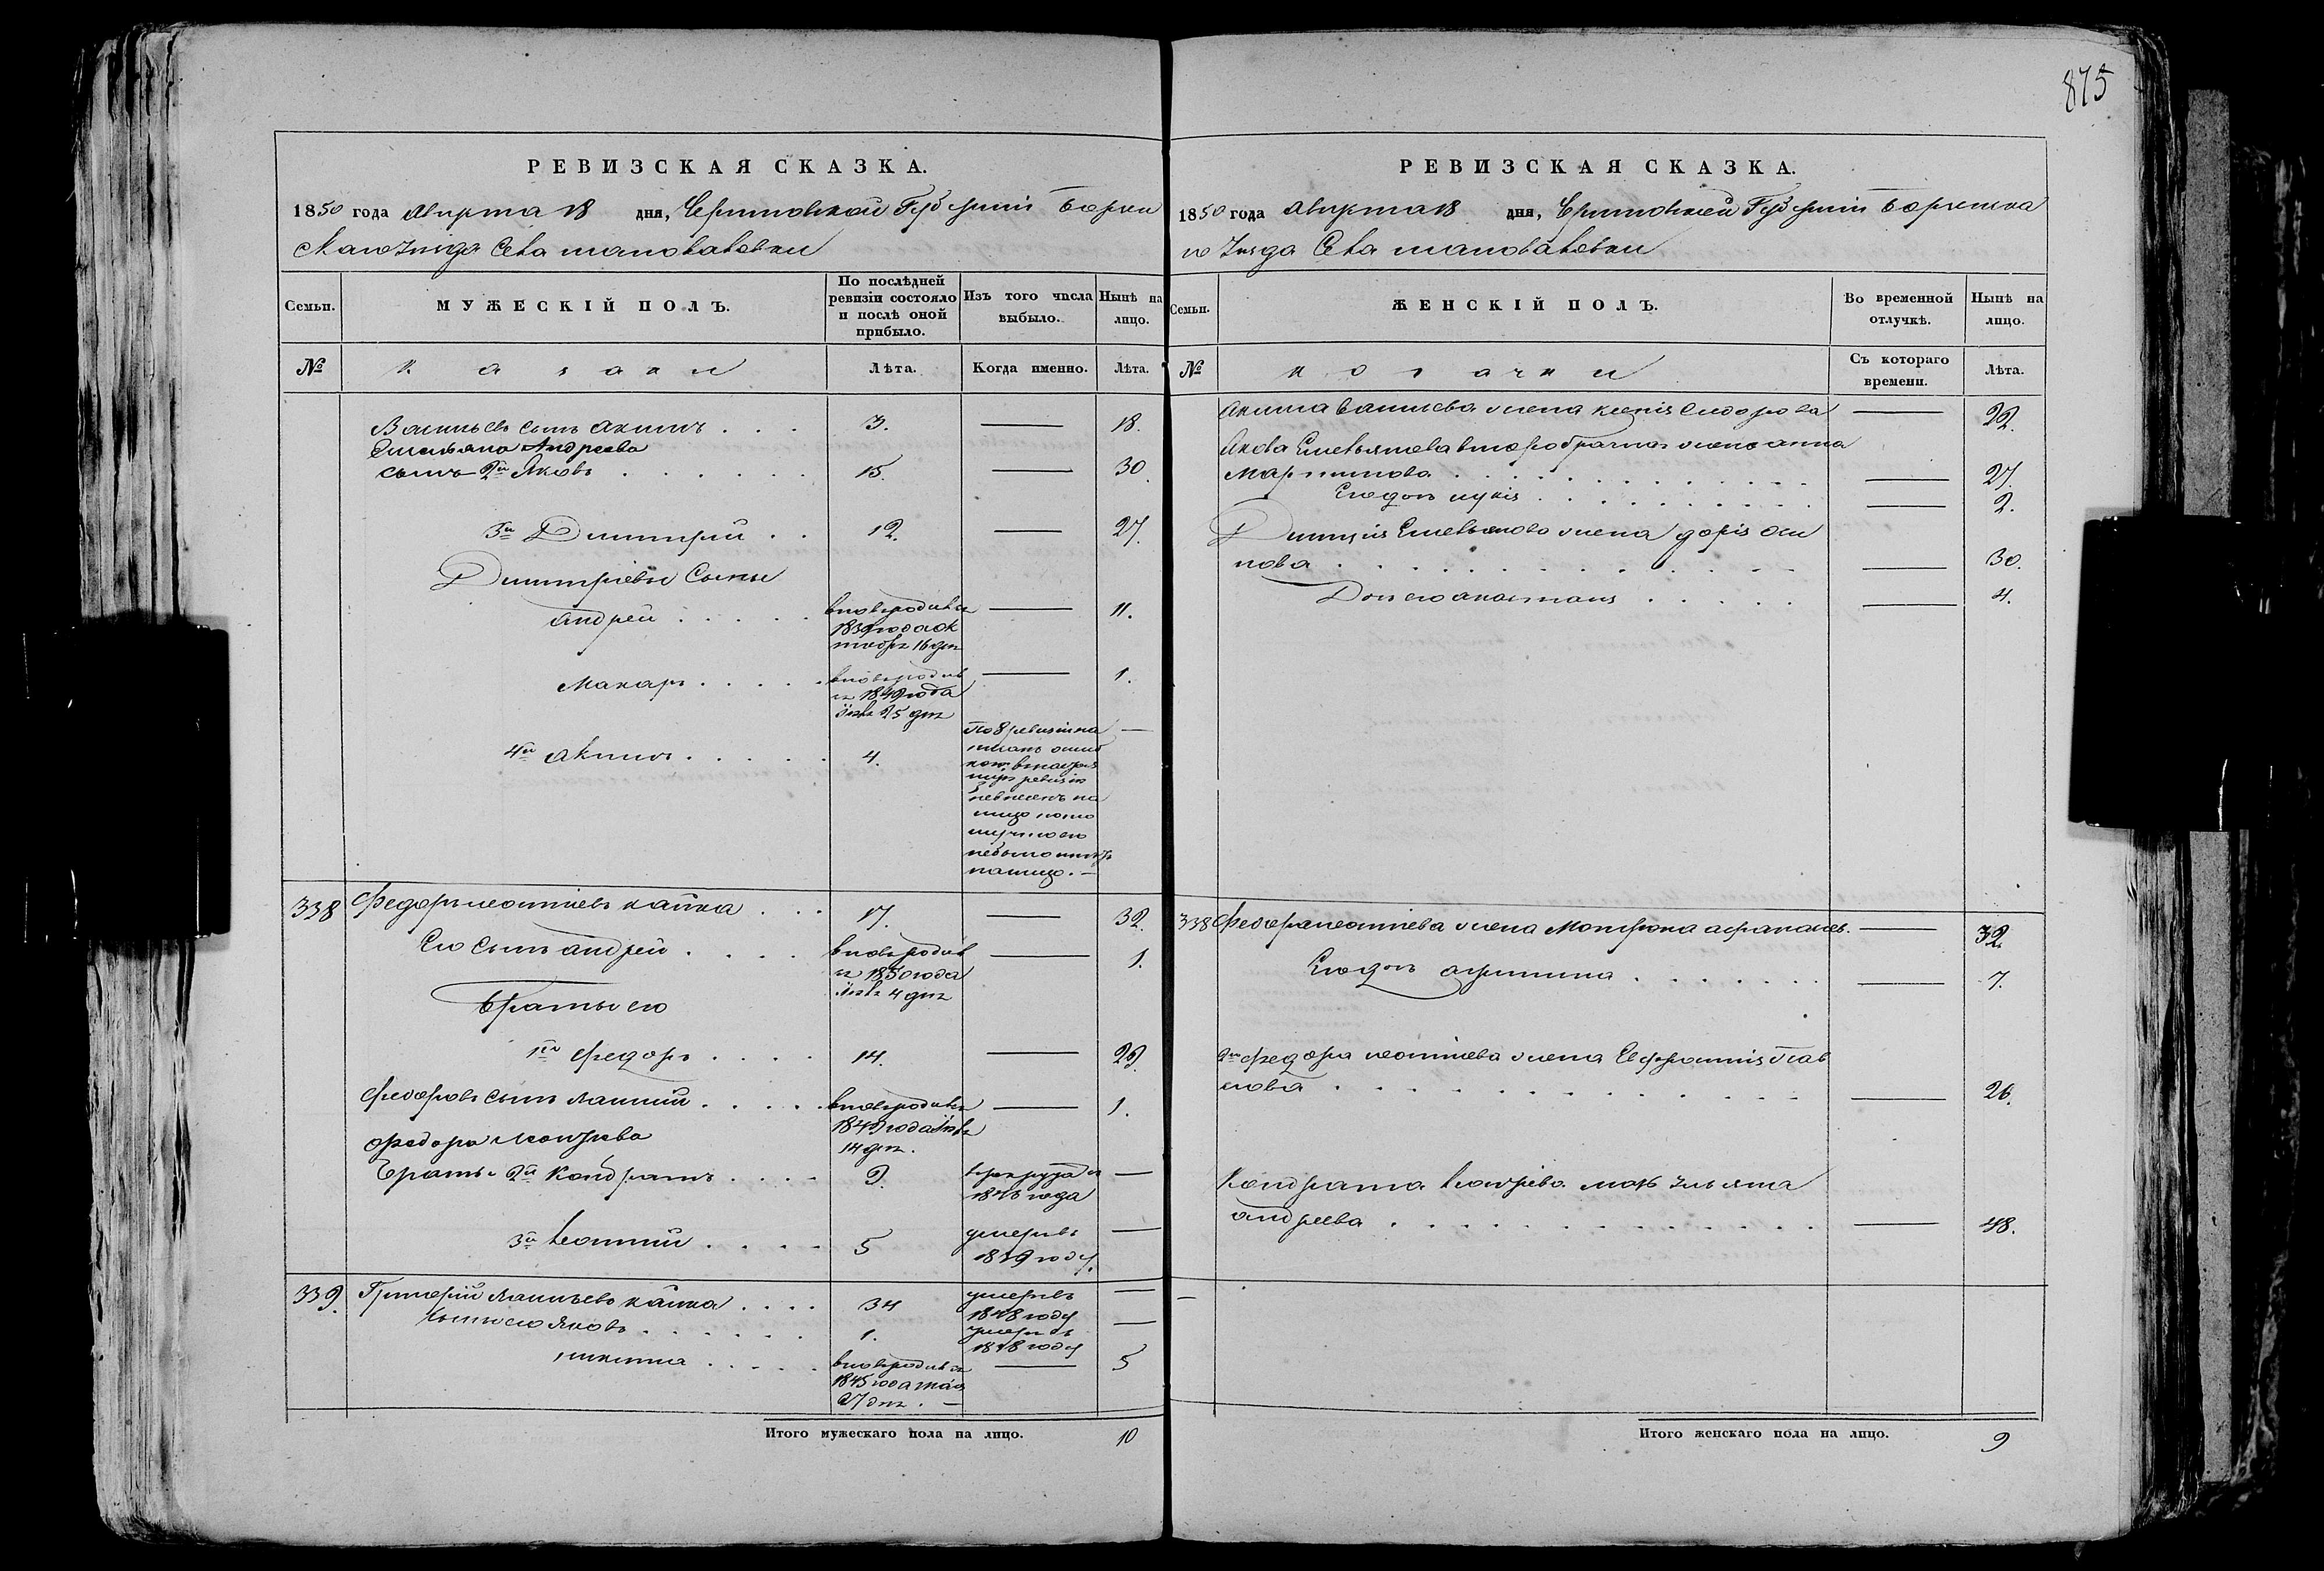 875
РЕВИЗСКАЯ СКАЗКА.
1850 года Августа 18 дня, Черниговской Губернии Борзен
скаго Уезда Села
Семьи.
МУЖЕСКІЙ ПОЛЪ.
По послѣдней ревизіи состояло и послѣ оной прибыло.
Изъ того числа выбыло.
Нынѣ на лицо.
№
казаки
Лѣта.
Когда именно.
Лѣта.
Васильевъ сынъ Акимъ . . . 3. — 18.
Емельяна Андреева
сынъ 2й Яковъ . . . 15. — 30.
3й Димитрий . . 12. — 27.
Димитріевы Сыны
Андрей . . . . . вновьродився — 11.
1839 года ок
тября 16 дня
Макаръ . . . . . вновьродив — 1.
ся 1849 года
25 дня
4й Акимъ . . . . . 4. По 8 ревизіи на —
писанъ ошиб
кою
ревизію
на
лицо
налицо. —
338 Федоръ Леонтіевъ Кайка . . . 17. — 32.
Его Сынъ Андрей . . . . вновьродив — 1.
ся 1850 года
4 дня
Братья его
1й Федоръ . . . . 14. — 29.
Федоровъ сынъ . . . . . вновьродився — 1.
1849 года
14 дня.
Федора Леонтіева
Братья 2й Кондратъ . . . . 9. —
года
3й Леонтий . . . . 5 умеръ въ —
1839 году.
339. Григорій Кайка . . . . 34 умеръ въ —
1848 году
Сынъ его Яковъ . . . . . . 1. умеръ въ —
1848 году
Никита . . . . . вновьродився — 5
1845 года мая
27 дня. —
Итого мужескаго пола на лицо. 10
РЕВИЗСКАЯ СКАЗКА.
1850 года Августа 18 дня, Черниговской Губернии Борзенска
го Уезда Села
Семьи.
ЖЕНСКІЙ ПОЛЪ.
Во временной отлучкѣ.
Нынѣ на лицо.
№
козачки
Съ котораго времени.
Лѣта.
Акима Васильева жена Ксенія Сидорова — 22.
Якова Емельянова второбрачная жена Анна
Мартинова . . . — 27.
Его дочь . . . — 2.
Димитрія Емельянова жена Дарія Оси
пова . . . — 30.
Дочь его Анастасия . . . . . — 4.
338 Федора Леонтіева жена Мотрона Афанасьев. — 32.
Его дочь . . . . . . . — 7.
2го Федора Леонтіева жена Евфросинія Пав
лова . . . — 26.
Кондрата Леонтіева мать Ульяна
Андреева . . . — 48.
Итого женскаго пола на лицо. 9